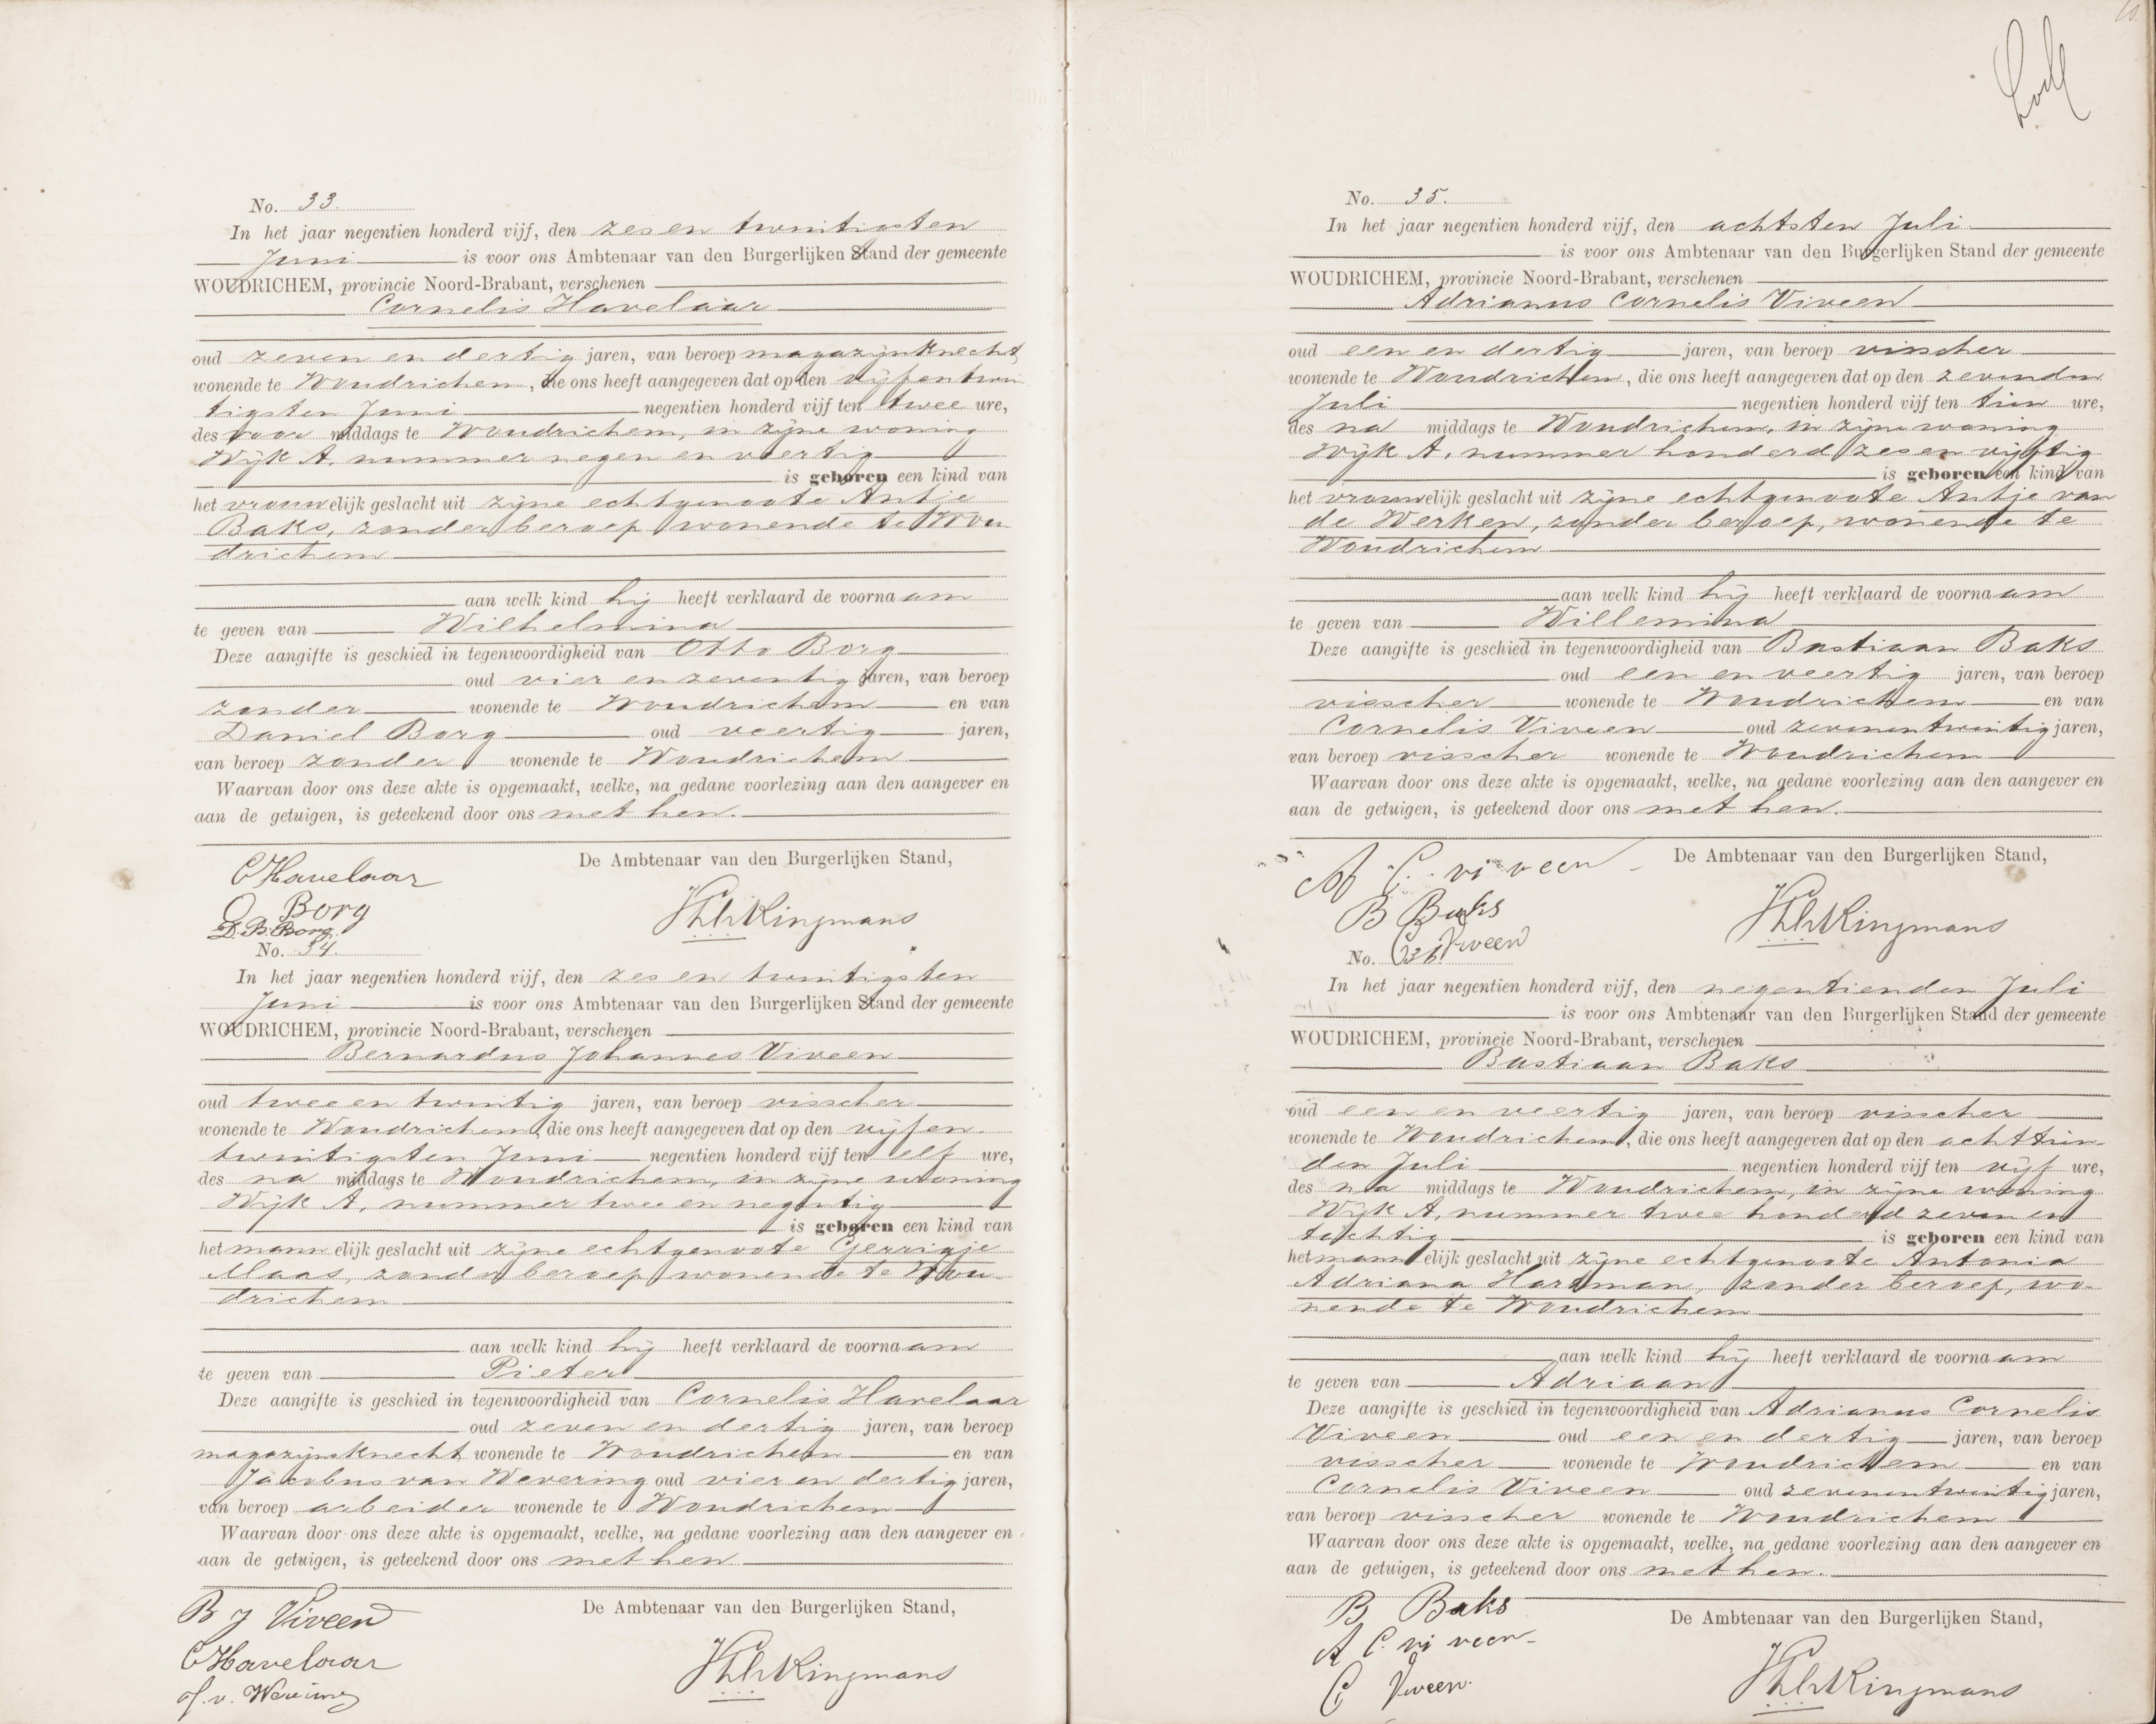 No. 33.
In het jaar negentien honderd vijf, den zes en twintigsten
Juni is voor ons Ambtenaar van den Burgerlijken Stand der gemeente
WOUDRICHEM, provincie Noord-Brabant, verschenen
Cornelis Havelaar
oud zeven en dertig jaren, van beroep magazijnknecht
wonende te Woudrichem, die ons heeft aangegeven dat op den vijfentwin
tigsten Juni negentien honderd vijf ten twee ure,
des voor middags te Woudrichem, in zijne woning
Wijk A, nummer negen en veertig
is geboren een kind van
het vrouwelijk geslacht uit zijne echtgenoote Antje
Baks, zonder beroep wonende te Wou
drichem
aan welk kind hij heeft verklaard de voornaam
te geven van Wilhelmina
Deze aangifte is geschied in tegenwoordigheid van Otto Borg
oud vier en zeventig jaren, van beroep
zonder wonende te Woudrichem en van
Daniel Borg oud veertig jaren,
van beroep zonder wonende te Woudrichem
Waarvan door ons deze akte is opgemaakt, welke, na gedane voorlezing aan den aangever en
aan de getuigen, is geteekend door ons met hen.
De Ambtenaar van den Burgerlijken Stand,
C Havelaar
O Borg
D. B. Borg
Kingmans
No. 34.
In het jaar negentien honderd vijf, den zes en twintigsten
Juni is voor ons Ambtenaar van den Burgerlijken Stand der gemeente
WOUDRICHEM, provincie Noord-Brabant, verschenen
Bernardus Johannes Viveen
oud twee en twintig jaren, van beroep visscher
wonende te Woudrichem, die ons heeft aangegeven dat op den vijfen
twintigsten Juni negentien honderd vijf ten elf ure,
des na middags te Woudrichem, in zijne woning
Wijk A, nummer twee en negentig
is geboren een kind van
het mannelijk geslacht uit zijne echtgenoote Gerrigje
Maas, zonder beroep wonende te Wou
drichem
aan welk kind hij heeft verklaard de voornaam
te geven van Pieter
Deze aangifte is geschied in tegenwoordigheid van Cornelis Havelaar
oud zeven en dertig jaren, van beroep
magazijnsknecht wonende te Woudrichem en van
Jacobus van Wevering oud vier en dertig jaren,
van beroep arbeider wonende te Woudrichem
Waarvan door ons deze akte is opgemaakt, welke, na gedane voorlezing aan den aangever en
aan de getuigen, is geteekend door ons met hen
De Ambtenaar van den Burgerlijken Stand,
B J Viveen
C Havelaar
J. v. Wevering
Kingmans
No. 35.
In het jaar negentien honderd vijf, den achtsten Juli
is voor ons Ambtenaar van den Burgerlijken Stand der gemeente
WOUDRICHEM, provincie Noord-Brabant, verschenen
Adrianus Cornelis Viveen
oud een en dertig jaren, van beroep visscher
wonende te Woudrichem, die ons heeft aangegeven dat op den zevenden
Juli negentien honderd vijf ten tien ure,
des na middags te Woudrichem, in zijne woning
Wijk A, nummer honderd zes en vijftig
is geboren een kind van
het vrouwelijk geslacht uit zijne echtgenoote Antje van
de Werken, zonder beroep, wonende te
Woudrichem
aan welk kind hij heeft verklaard de voornaam
te geven van Willemina
Deze aangifte is geschied in tegenwoordigheid van Bastiaan Baks
oud een en veertig jaren, van beroep
visscher wonende te Woudrichem en van
Cornelis Viveen oud zevenentwintig jaren,
van beroep visscher wonende te Woudrichem
Waarvan door ons deze akte is opgemaakt, welke, na gedane voorlezing aan den aangever en
aan de getuigen, is geteekend door ons met hen.
De Ambtenaar van den Burgerlijken Stand,
A C. viveen
B Baks
C Viveen
Kingmans
No. 36.
In het jaar negentien honderd vijf, den negentienden Juli
is voor ons Ambtenaar van den Burgerlijken Stand der gemeente
WOUDRICHEM, provincie Noord-Brabant, verschenen
Bastiaan Baks
oud een en veertig jaren, van beroep visscher
wonende te Woudrichem, die ons heeft aangegeven dat op den achttien
den Juli negentien honderd vijf ten vijf ure,
des na middags te Woudrichem, in zijne woning
Wijk A, nummer twee honderd zeven en
tachtig is geboren een kind van
het mannelijk geslacht uit zijne echtgenoote Antonia
Adriana Hartman, zonder beroep, wo-
nende te Woudrichem
aan welk kind hij heeft verklaard de voornaam
te geven van Adriaan
Deze aangifte is geschied in tegenwoordigheid van Adrianus Cornelis
Viveen oud een en dertig jaren, van beroep
visscher wonende te Woudrichem en van
Cornelis Viveen oud zevenentwintig jaren,
van beroep visscher wonende te Woudrichem
Waarvan door ons deze akte is opgemaakt, welke, na gedane voorlezing aan den aangever en
aan de getuigen, is geteekend door ons met hen.
De Ambtenaar van den Burgerlijken Stand,
B Baks
A C. viveen
C Viveen
Kingmans